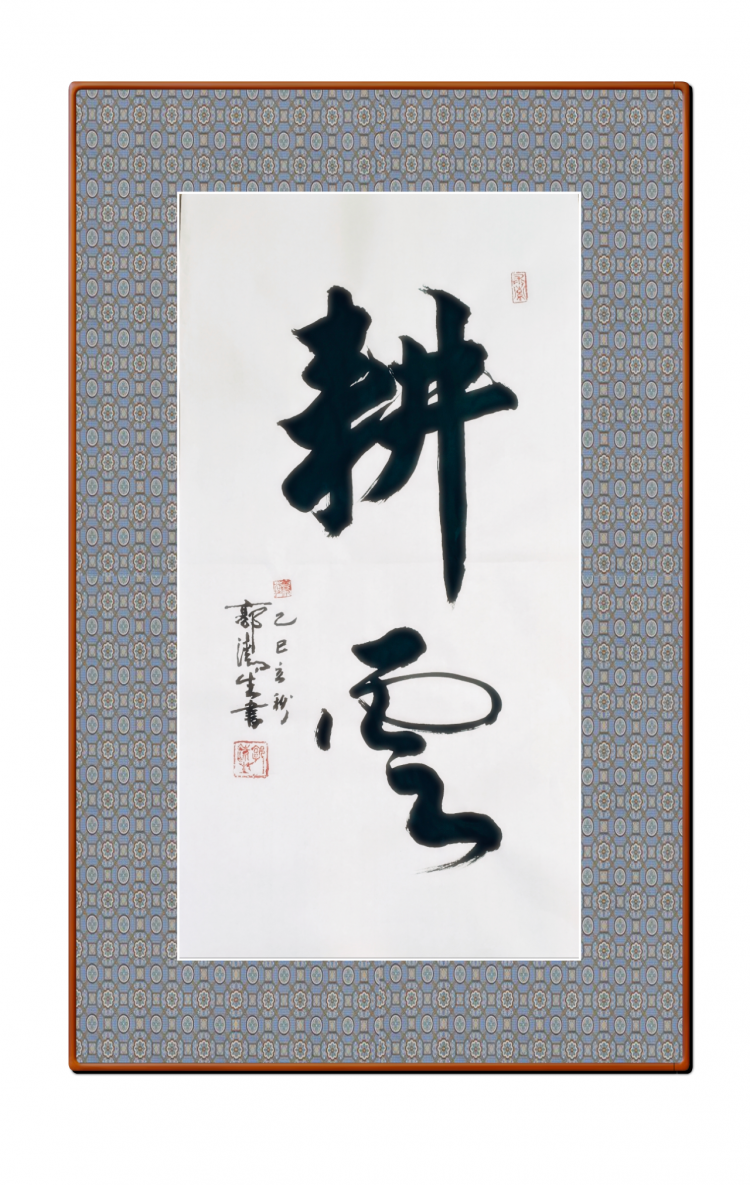 耕雲
乙巳立秋
郭濤生書